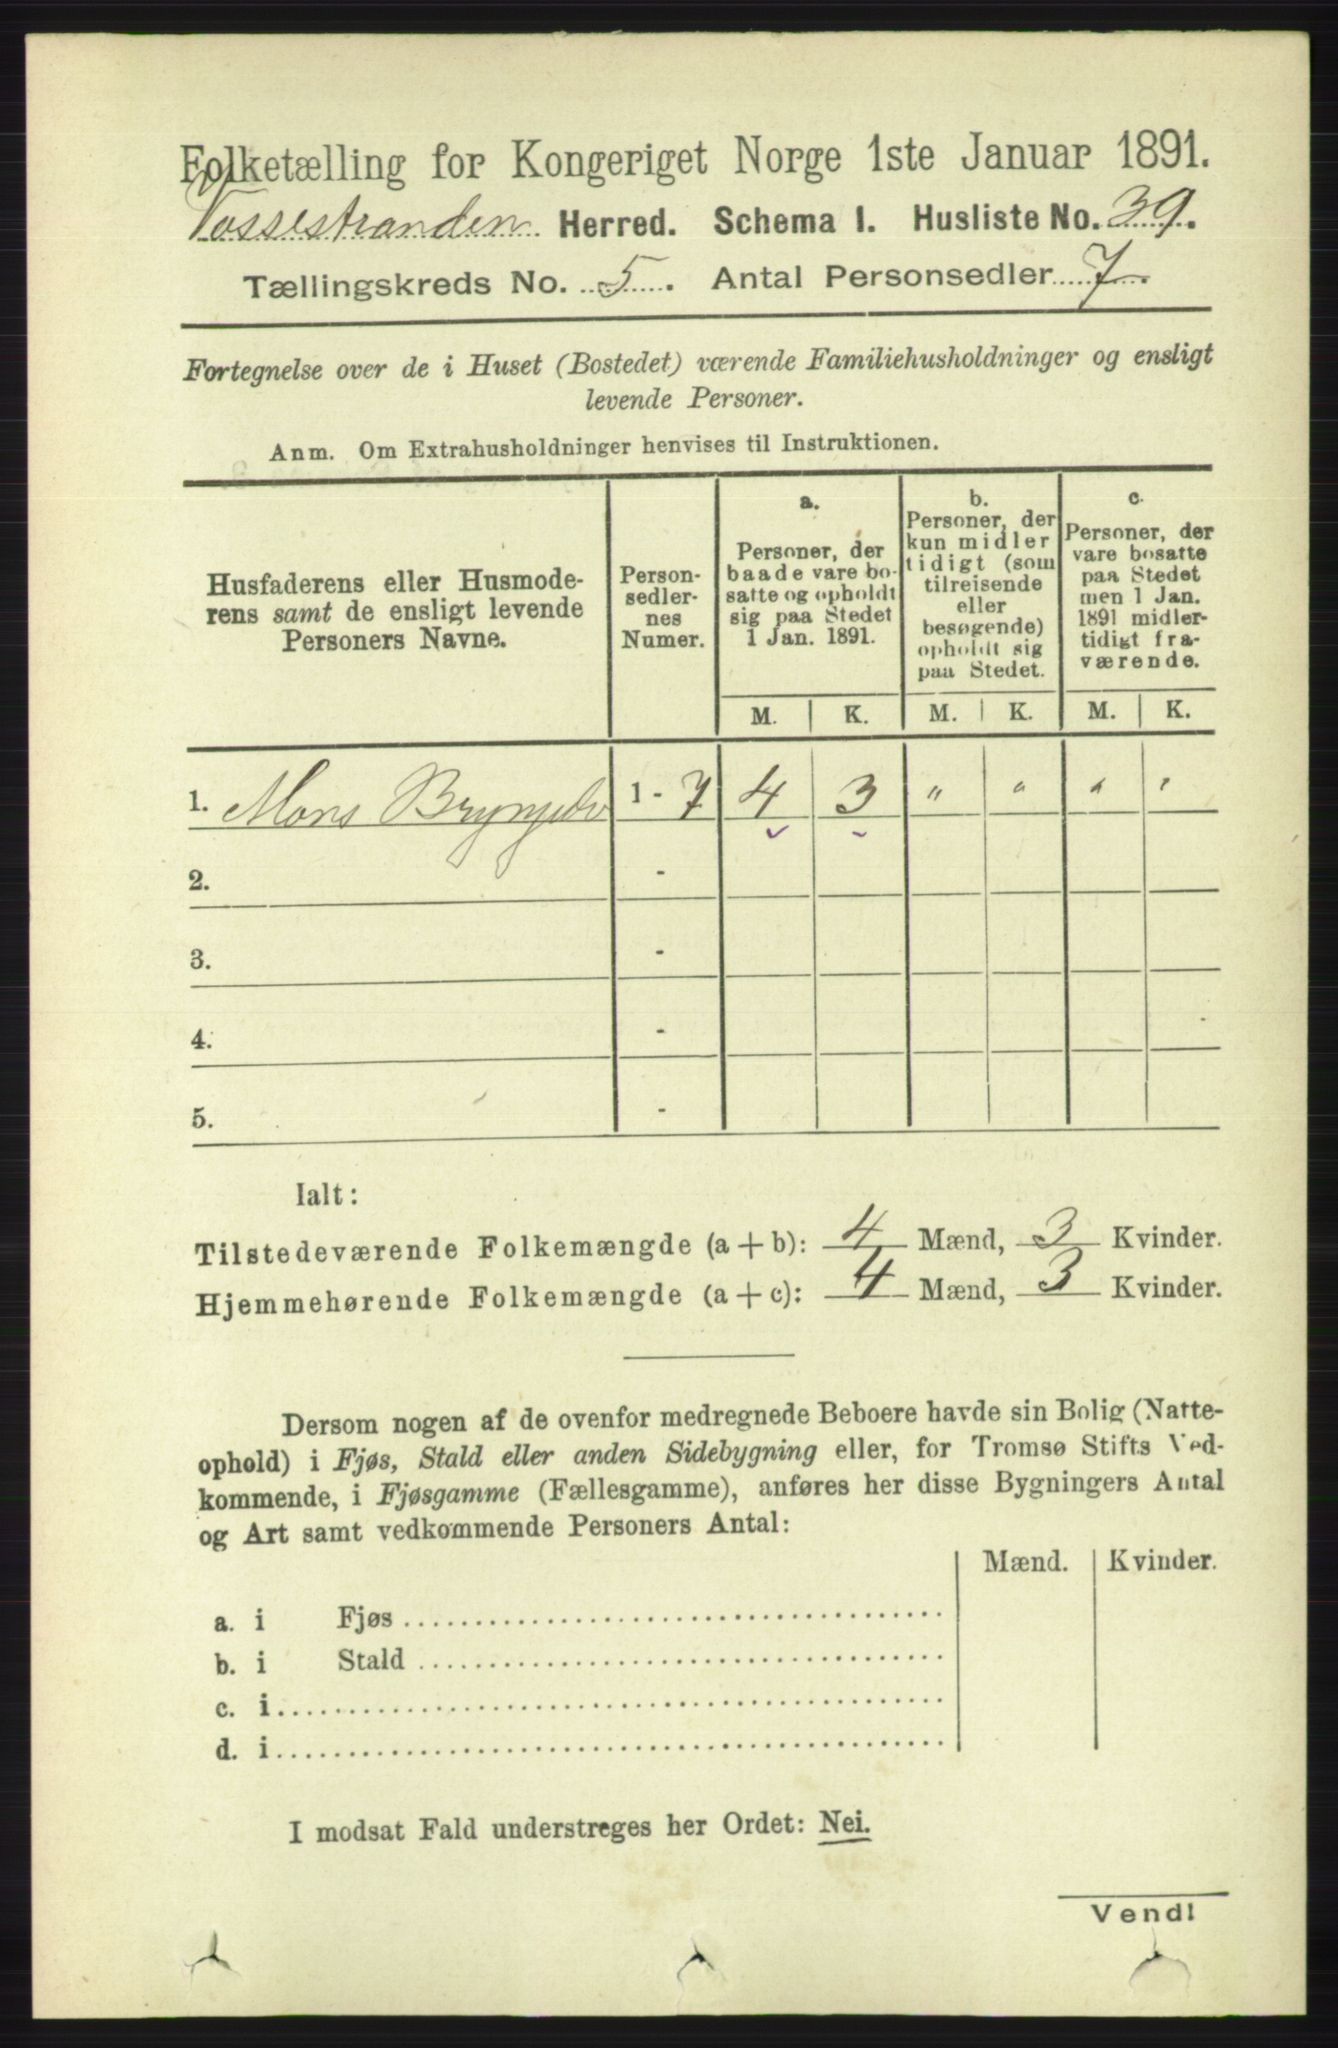 Folketælling for Kongeriget Norge 1ste Januar 1891.
Vossestranden Herred. Schema I. Husliste No. 39.
Tællingskreds No. 5. Antal Personsedler 7.
Fortegnelse over de i Huset (Bostedet) værende Familiehusholdninger og ensligt
levende Personer.
Anm. Om Extrahusholdninger henvises til Instruktionen.
Husfaderens eller Husmode-
rens samt de ensligt levende
Personers Navne.
Person-
sedler-
nes
Numer.
a.
Personer, der
baade vare bo-
satte og opholdt
sig paa Stedet
1 Jan. 1891.
b.
Personer, der
kun midler
tidigt (som
tilreisende
eller
besøgende)
opholdt sig
paa Stedet.
c.
Personer, der
vare bosatte
paa Stedet
men 1 Jan.
1891 midler-
tidigt fra-
værende.
M. K. M. K. M. K.
1. Mons 1 - 7 4 3 " " " "
2. -
3. -
4. -
5. -
Ialt:
Tilstedeværende Folkemængde (a + b): 4 Mænd, 3 Kvinder.
Hjemmehørende Folkemængde (a + c): 4 Mænd, 3 Kvinder.
Dersom nogen af de ovenfor medregnede Beboere havde sin Bolig (Natte-
ophold) i Fjøs, Stald eller anden Sidebygning eller, for Tromsø Stifts Ved-
kommende, i Fjøsgamme (Fællesgamme), anføres her disse Bygningers Antal
og Art samt vedkommende Personers Antal:
Mænd. Kvinder.
a. i Fjøs
b. i Stald
c. i
d. i
I modsat Fald understreges her Ordet: Nei.
Vend!